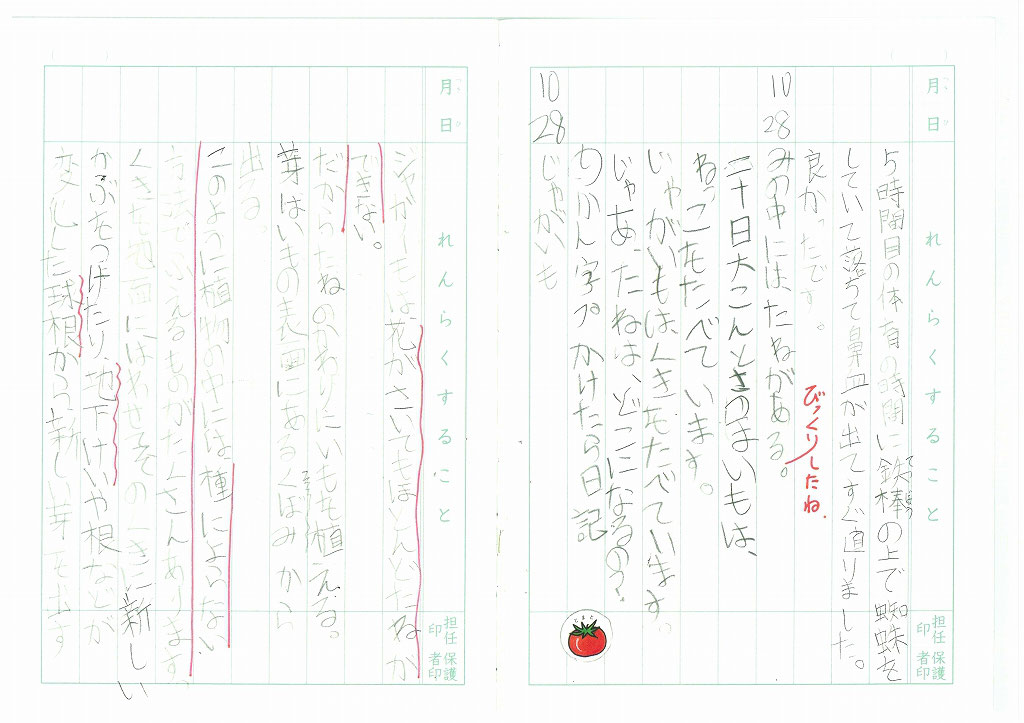 月日 れんらくすること 担任印 保護者印
5時間目の体育の時間に鉄棒の上で蜘蛛を
てつぼう
していて落ちて鼻血が出てすぐ直りました。
良かったです。
びっくりしたね.
10 28 みの中にはたねがある。
二十日大こんとさつまいもは、
ねっこをたべています。
じゃがいもはくきをたべています。
じゃあ、たねは、どこになるの?
かん字 かけたら日記
とまと
10 28 じゃがいも
月日 れんらくすること 担任印 保護者印
ジャガイモは、花がさいてもほとんどたねが
できない。
だからたねのかわりにいもを植える。
芽はいもの表面にあるくぼみから
出る。
このように植物の中には、種によらない
方法でふえるものがたくさんあります。
くきを地面にはわせそのくきに新しい
かぶをつけたり、地下けいや根などが
変化した球根から新しい芽を出す